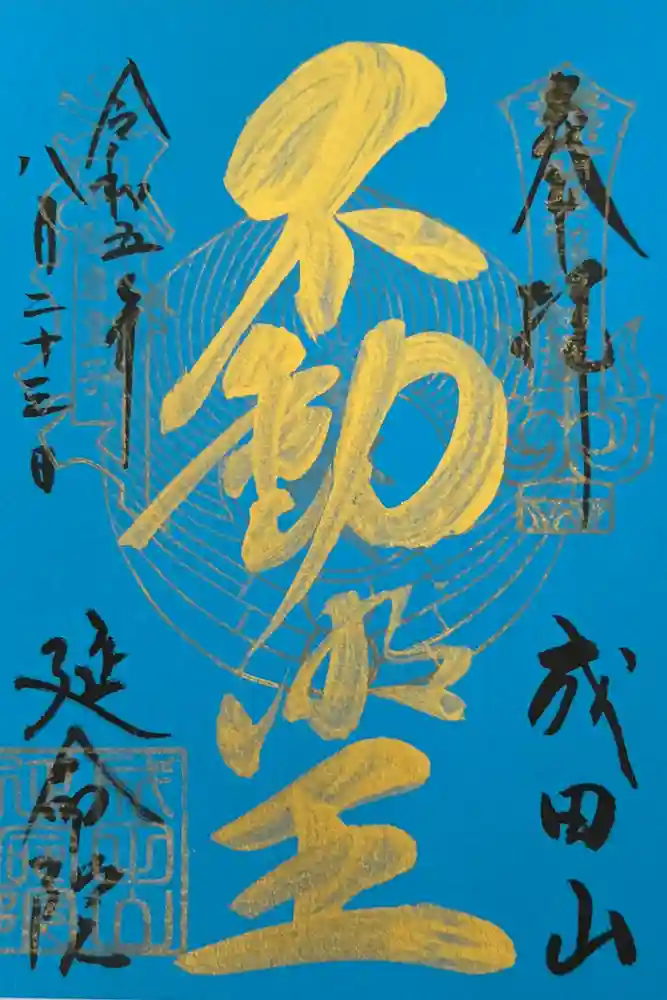 奉拝
成田山
不動明王
令和五年
八月二十三日
延命院